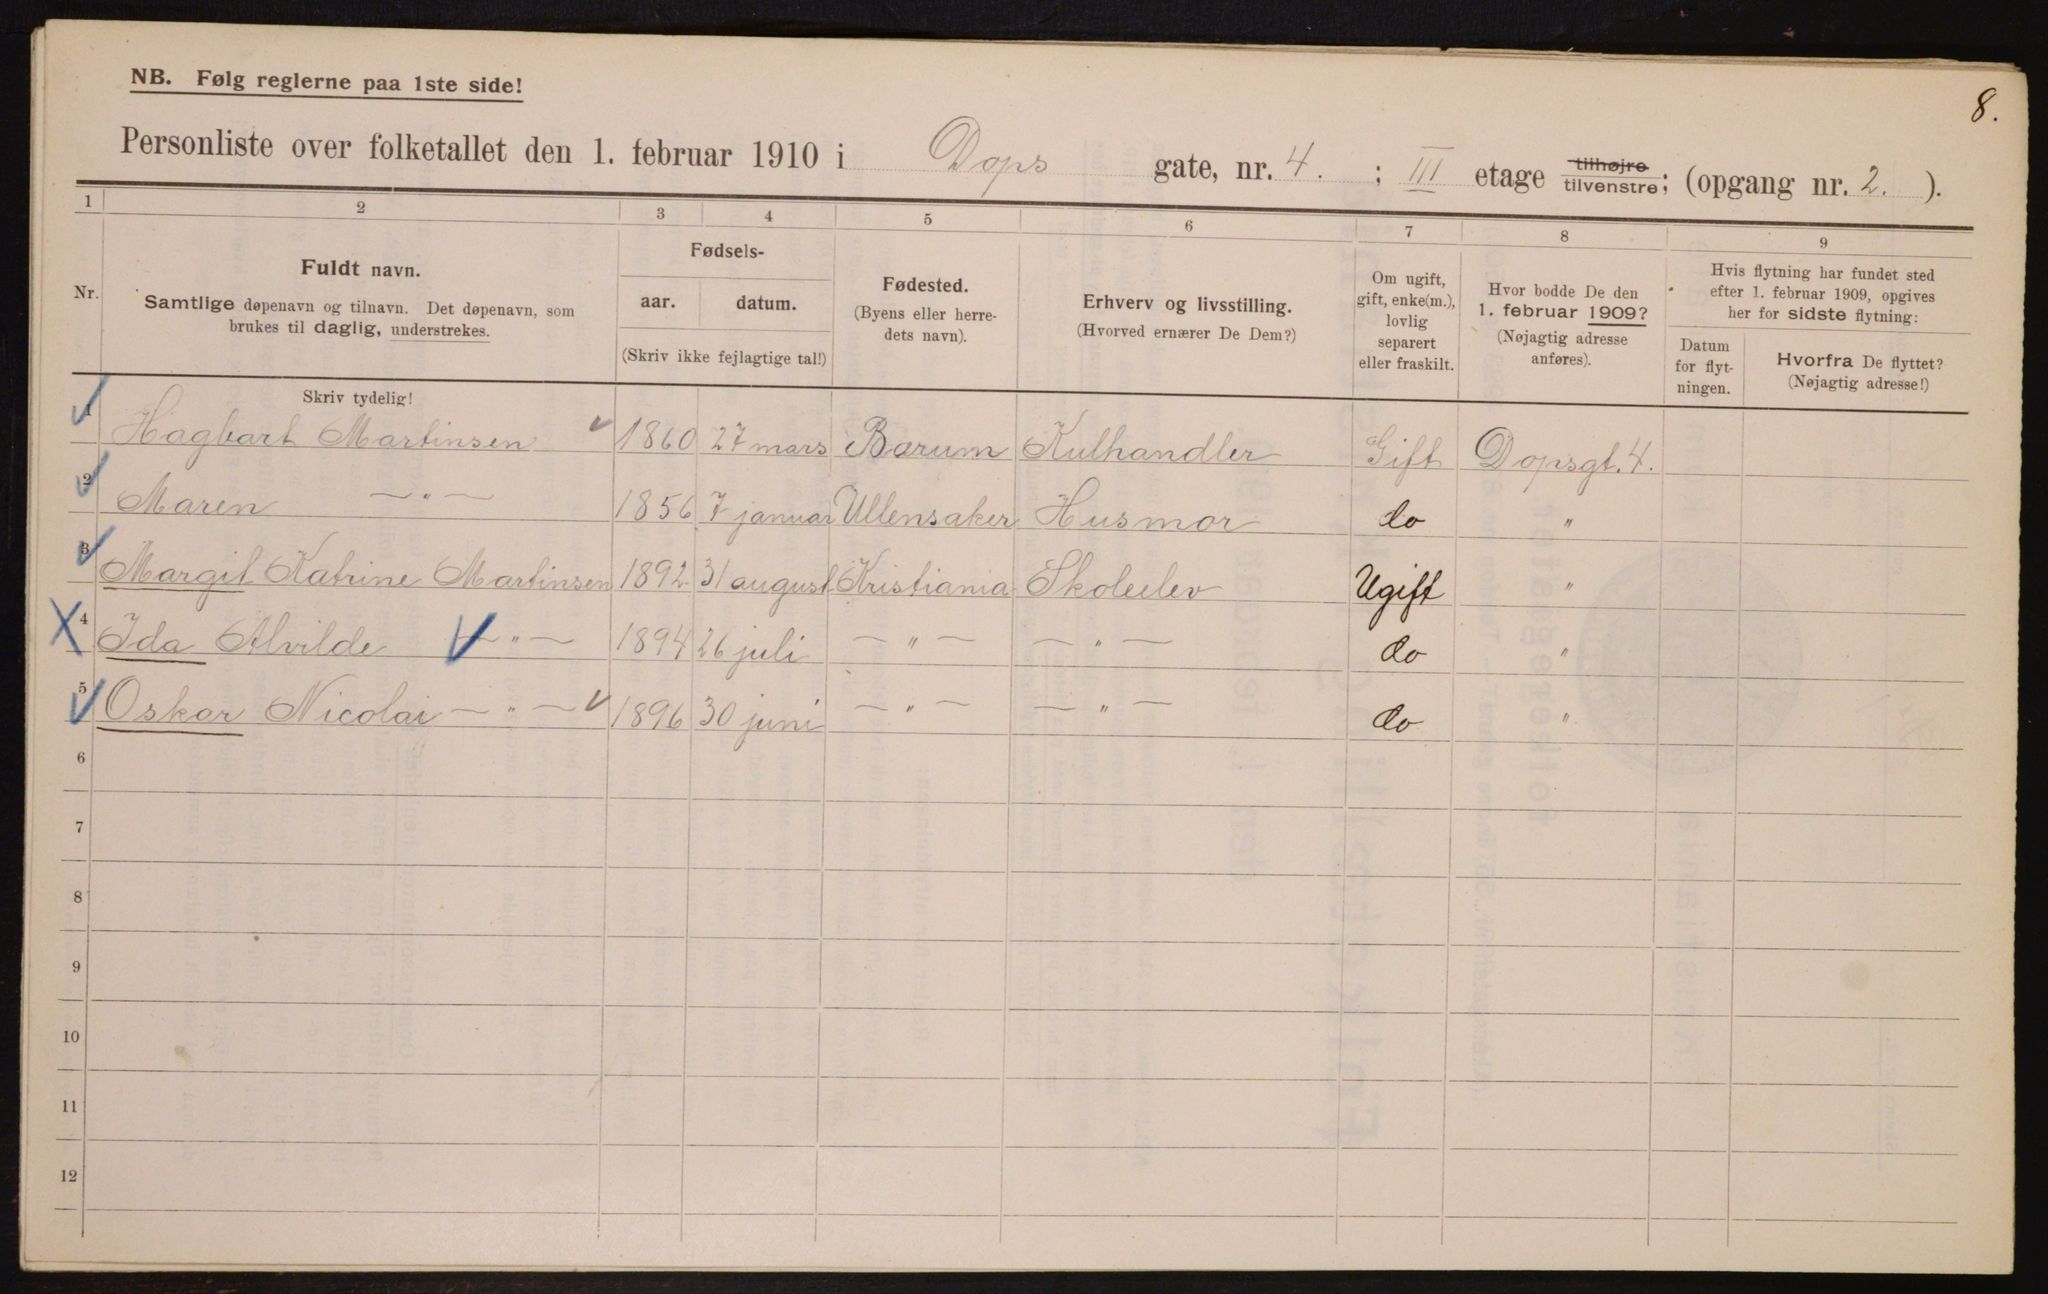 8.
NB. Følg reglerne paa 1ste side!
Personliste over folketallet den 1. februar 1910 i Dops gate, nr. 4. ; III etage tilhøjre tilvenstre; (opgang nr. 2. ).
1 2 3 4 5 6 7 8 9
Nr. Fuldt navn. Samtlige døpenavn og tilnavn. Det døpenavn, som brukes til daglig, understrekes.
Fødsels- aar. datum. (Skriv ikke fejlagtige tal!)
Fødested. (Byens eller herredets navn).
Erhverv og livsstilling. (Hvorved ernærer De Dem?)
Om ugift, gift, enke(m.), lovlig separert eller fraskilt.
Hvor bodde De den 1. februar 1909? (Nøjagtig adresse anføres).
Hvis flytning har fundet sted efter 1. februar 1909, opgives her for sidste flytning:
Datum for flytningen. Hvorfra De flyttet? (Nøjagtig adresse!)
Skriv tydelig!
1 Hagbart Martinsen 1860 27 mars Bærum Kulhandler Gift Dopsgt. 4.
2 Maren — " — 1856 7 januar Ullensaker Husmor do "
3 Margit Katrine Martinsen 1892 31 august Kristiania Skoleelev Ugift "
4 Ida Alvilde — " — 1894 26 juli — " — — " — do "
5 Oskar Nicolai — " — 1896 30 juni — " — — " — do "
6
7
8
9
10
11
12